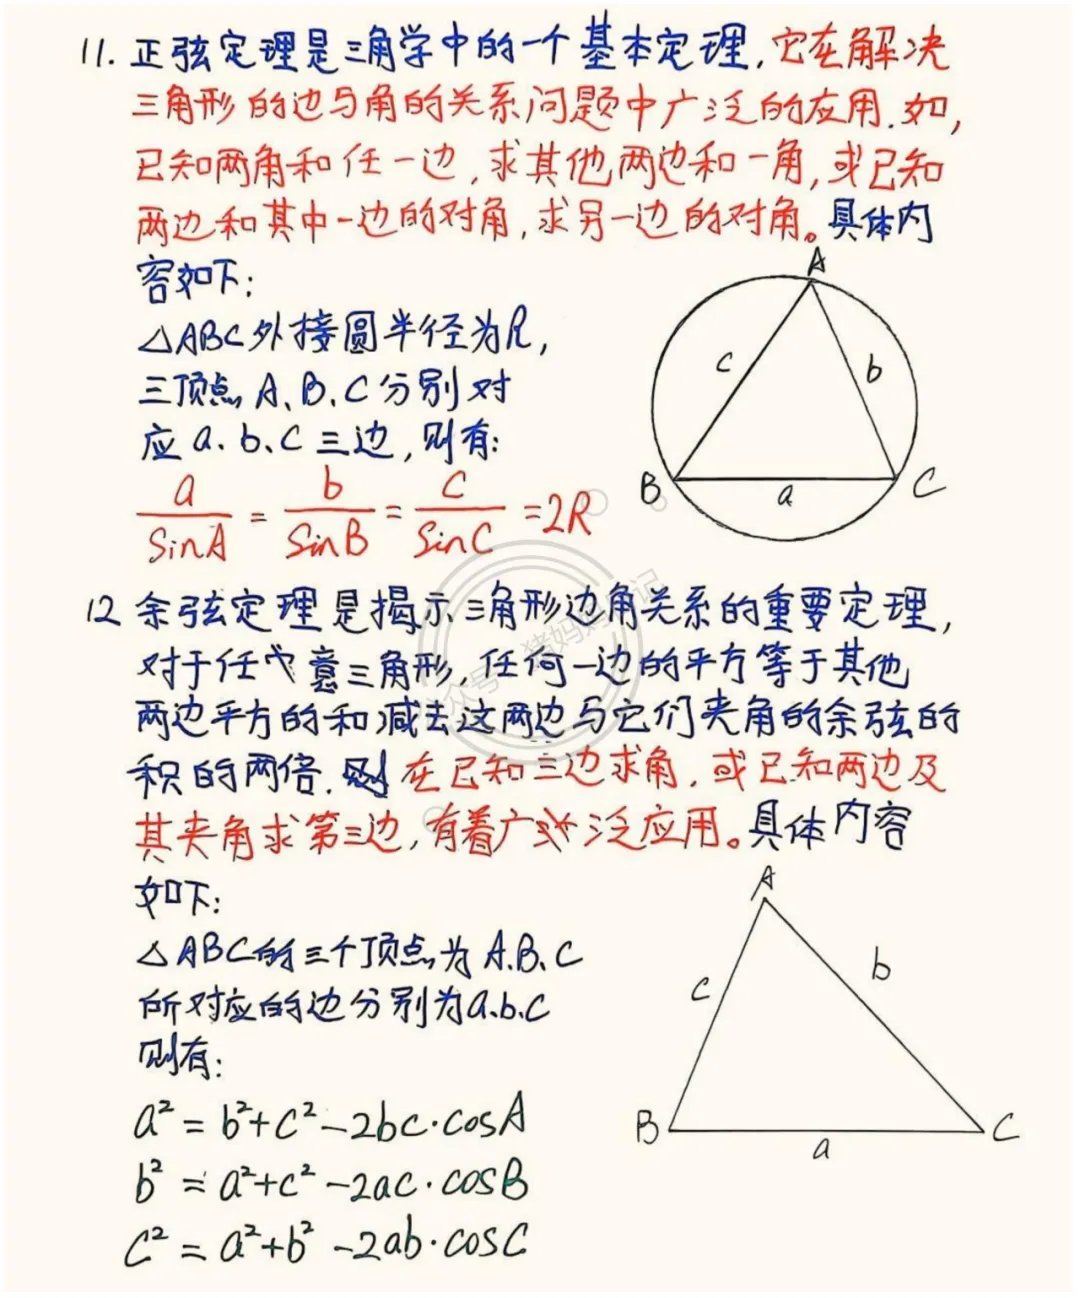 11. 正弦定理是三角学中的一个基本定理,它在解决
三角形的边与角的关系问题中广泛的应用.如,
已知两角和任一边,求其他两边和一角,或已知
两边和其中一边的对角,求另一边的对角。具体内
容如下:
△ABC外接圆半径为R,
三顶点A、B、C分别对
应a、b、c三边,则有:
a/SinA = b/SinB = c/SinC = 2R
A
c
b
B
a
C
12 余弦定理是揭示三角形边角关系的重要定理,
对于任意三角形,任何一边的平方等于其他
两边平方的和减去这两边与它们夹角的余弦的
积的两倍.则在已知三边求角,或已知两边及
其夹角求第三边,有着广泛应用。具体内容
如下:
△ABC的三个顶点为A.B.C
所对应的边分别为a.b.c
则有:
a²=b²+c²-2bc·cosA
b²=a²+c²-2ac·cosB
c²=a²+b²-2ab·cosC
A
c
b
B
a
C